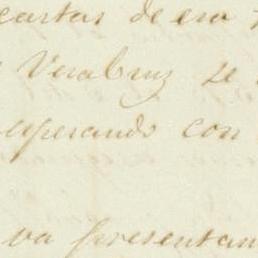 cartas de esa
VeraCruz se
esperando con
va presentan